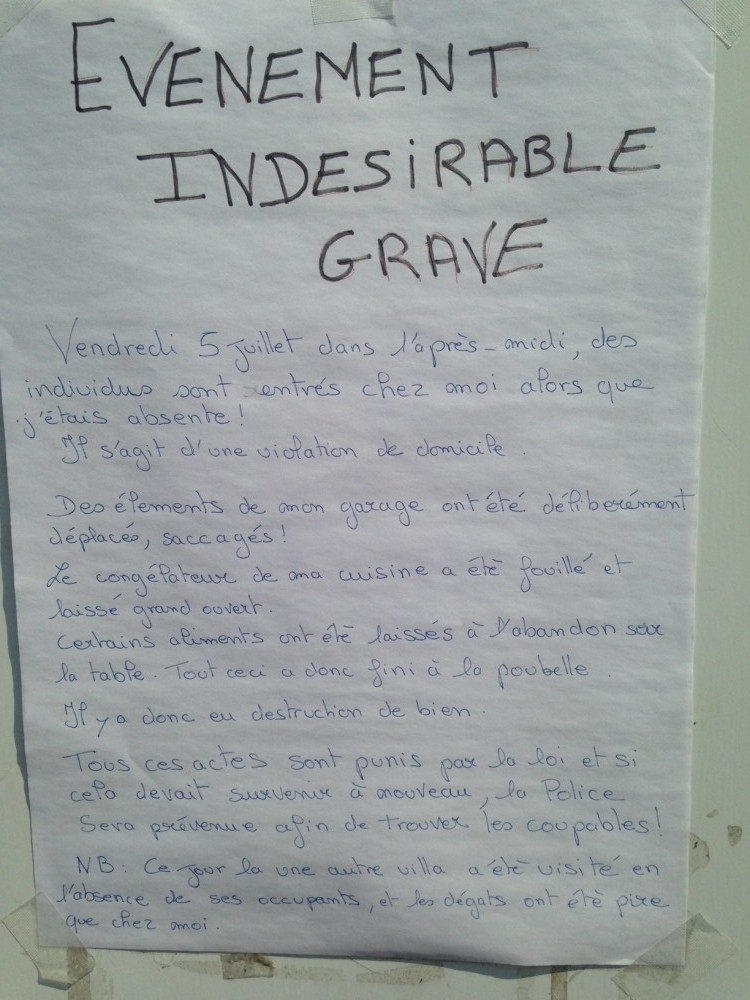 EVENEMENT
INDESiRABLE
GRAVE
Vendredi 5 juillet dans l'après-midi, des
individus sont entrés chez moi alors que
j'étais absente!
Il s'agit d'une violation de domicile.
Des élements de mon garage ont été déliberément
déplacés, saccagés!
Le congélateur de ma cuisine a été fouillé et
laissé grand ouvert.
Certains aliments ont été laissés à l'abandon sur
la table. Tout ceci a donc fini à la poubelle.
Il y a donc eu destruction de bien.
Tous ces actes sont punis par la loi et si
cela devait survenir à nouveau, la Police
Sera prévenue afin de trouver les coupables!
NB: Ce jour la une autre villa a été visité en
l'absence de ses occupants, et les dégats ont été pire
que chez moi.